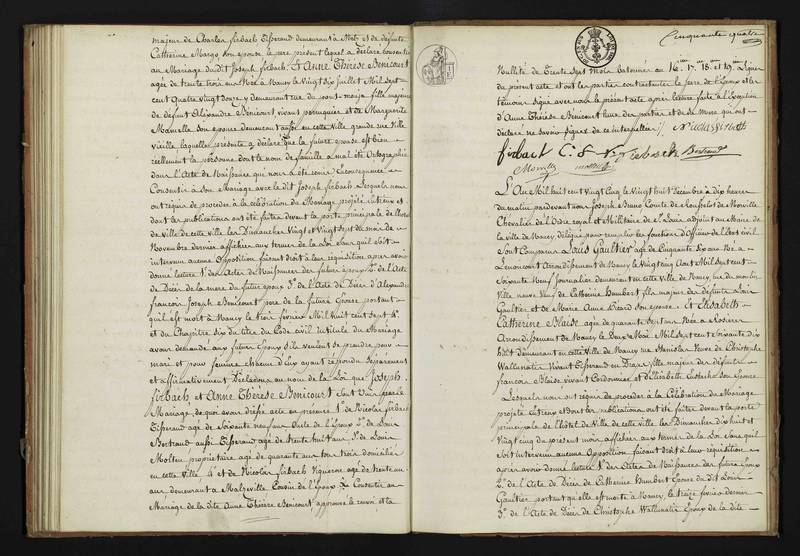 majeur de Charles firbach Tisserand demeurant à Metz et de défunte
Catherine Margo son épouse le père présent lequel a déclaré consentir
au Mariage dudit Joseph firbach. Et Anne Thérèse Benicourt
agée de trente trois ans Née à Nancy le Vingt six Juillet Mil Sept
cent Quatre Vingt douze y demeurant rue du pont-mouja fille majeure
de défunt Alexandre Bénicourt vivant perruquier et de Marguerite
son épouse demeurant aussi en cette Ville grande rue Ville
vieille, laquelle présente a déclaré que la future épouse est bien
réellement la personne dont le nom de famille a mal été ortographié
dans l'Acte de Naissance qui nous a été remis En conséquence
Consentir à son Mariage avec le dit Joseph firbach Lesquels nous
ont requis de procéder à la célébration du Mariage projeté entreux et
dont les publications ont été faites devant la porte principale de l'hotel
de Ville de cette ville les Dimanches Vingt et Vingt sept du mois de
Novembre dernier affichées aux termes de la Loi sans qu'il soit
intervenu aucune Opposition faisant droit à leur réquisition après avoir
donné lecture 1° des Actes de Naissances des futurs époux 2° de l'Acte
de Décès de la mère du futur époux 3° de l'Acte de Décès d'Alexandre
françois Joseph Benicourt père de la future Epouse portant
qu'il est mort à Nancy le trois février Mil huit cent sept 4°
et du Chapitre six du titre du Code civil intitulé du Mariage
avons demandé aux futurs Epoux s'ils veulent se prendre pour
mari et pour femme chacun d'Eux ayant répondu séparément
et affirmativement Déclarons au nom de la Loi que Joseph
firbach, et Anne Thérèse Benicourt Sont Unis par le
Mariage, de quoi avons dressé acte en présence 1° de Nicolas firbach
Tisserand agé de Soixante neuf ans Oncle de l'époux 2° de Louis
Bertrand aussi Tisserand agé de trente huit ans 3° de Louis
propriétaire agé de quarante aux tous trois domiciliés
en cette Ville 4° et de Nicolas firbach Vigneron agé de trente
ans demeurant à Malzéville Cousin de l'époux Consentir au
Mariage de la dite Anne Thérèse Benicourt approuvé le renvoi et la
Cinquante quatre
Nullité de Trente Sept Mots batonnés au 16me 17me 18me et 19me Lignes
du présent acte et ont les parties contractantes le père de l'époux et les
témoins signé avec nous le présent acte après lecture faite à l'exception
d'Anne Thérèse Benicourt l'une des parties et de Sa Mère qui ont
déclaré ne savoir signer de ce interpellées %. Nicolas firbach
firbach C. F N. firbach Bertrand
L'An Mil huit cent Vingt Cinq le Vingt huit Décembre à Dix heures
du matin pardevant nous Joseph Bruno Comte de
Chevalier de l'Ordre royal et Militaire de St Louis adjoint au Maire de
la ville de Nancy délégué pour remplir les fonctions d'Officier de l'Etat civil
Sont Comparus Louis Gaultier agé de Cinquante six ans Né à
Lenoncourt Arrondissement de Nancy le Vingt cinq Août Mil Sept cent
Soixante Neuf Journalier demeurant en cette ville de Nancy rue du moulin
Ville neuve Veuf de Catherine Humbert fils majeur des défunts Louis
Gaultier et de Marie Anne Picard son épouse. Et Elisabeth
Catherine Blaise agée de quarante sept ans Née à Rosières
Arrondissement de Nancy le Deux Mai Mil Sept cent Soixante dix
huit demeurant en cette Ville de Nancy rue Stanislas Veuve de Christophe
vivant Tisserand en Draps fille majeure des défunts
françois Blaise vivant Cordonnier et d'Elisabeth son Epouse
Lesquels nous ont requis de procéder à la Célébration du Mariage
projeté entreux et dont les publications ont été faites devant la porte
principale de l'hôtel de Ville de cette Ville les Dimanches dix huit et
Vingt cinq du présent mois affichées aux termes de la Loi Sans qu'il
Soit intervenu aucune Opposition faisant droit à leur réquisition
après avoir donné lecture 1° des Actes de Naissances des futurs Epoux
2° de l'Acte de Décès de Catherine Humbert Epouse du dit Louis
Gaultier portant qu'elle est morte à Nancy le treize février dernier
3° de l'Acte de Décès de Christophe Epoux de la dite